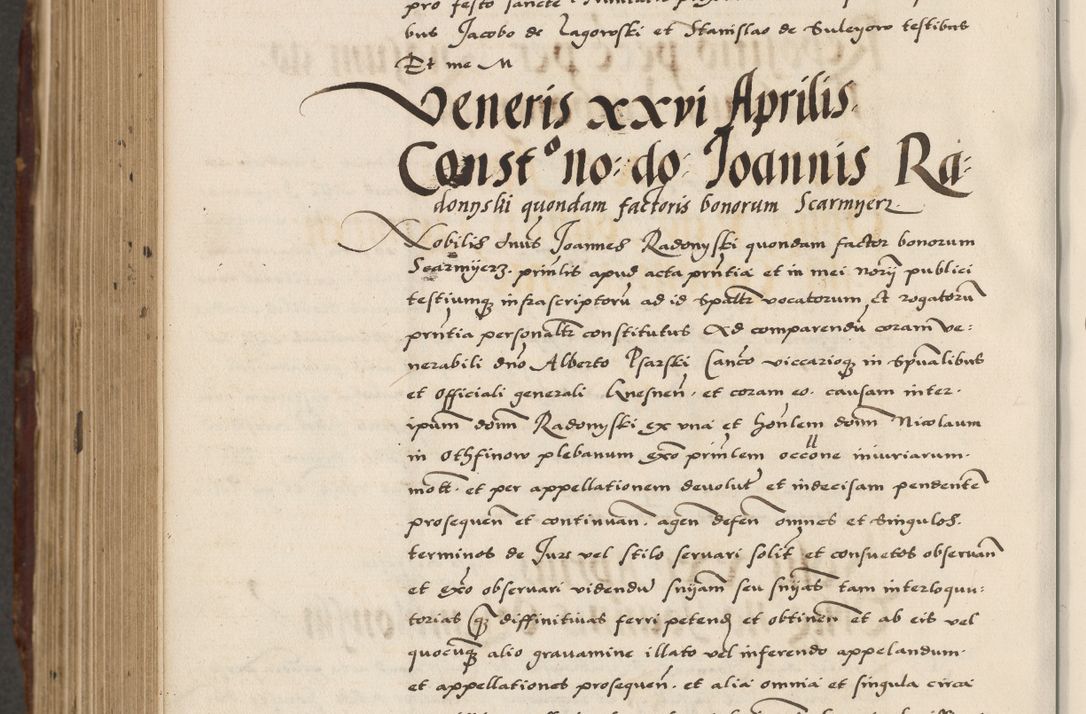 pro festo sancte
bus Jacobo de Lagowski et Stanislao de Suleyow testibus
Et me M
Veneris xxvi Aprilis.
Constº no: do: Joannis Ra:
donyski quondam factoris bonorum Scarmyerz.
Nobilis dnus Joannes Radonyski quondam factor bonorum
Scarmyerz. prinlis apud acta prntia et in mei norij publici
testiumq infrascriptoru ad id spaltr vocatorum et rogatoru
prntia personaltr constitutus Ad comparendu coram ve:
nerabili dno Alberto Psarski Canco viccarioq in spualibus
et Officiali generali Gnesnen. et coram eo. causam inter.
ipum dominum Radonyski ex vna et honlem domin Nicolaum
in Othfinow plebanum exo prinlem occone iniuriarum.
mott. et per appellationem deuolut et indecisam pendente
prosequen et continuan. agen defen omnes et singulos.
terminos de Jure vel stilo seruari solit et consuetos obseruan
et exo obseruari videndu sniam seu snias tam interloqu:
torias q diffinitiuas ferri petend et obtinen et ab eis vel
quocuq alio grauamine illato vel inferendo appelandum.
et appellationes prosequen. et alia omnia et singula circa